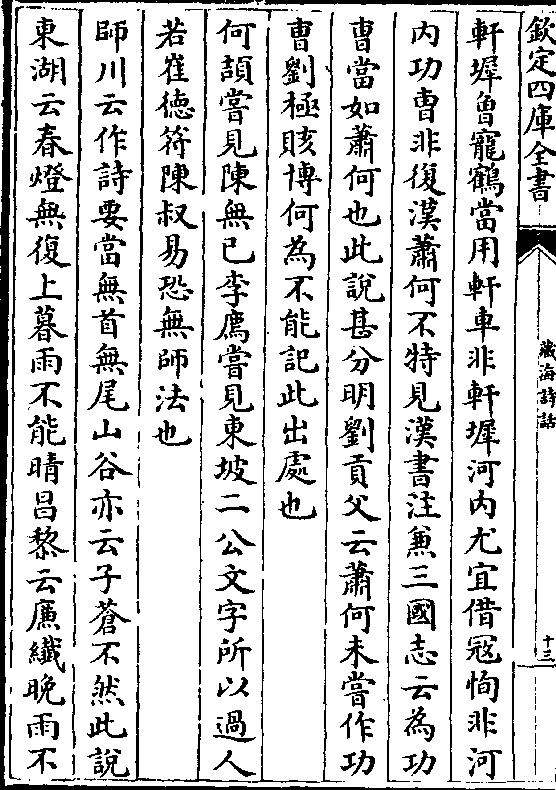 欽定四庫全書
藏海詩話
十三
軒墀魯寵鶴當用軒車非軒墀河内尤宜借冦恂非河
内功曹非復漢蕭何不特見漢書注兼三國志云為功
曹當如蕭何也此說甚分明劉貢父云蕭何未嘗作功
曹劉極賅博何為不能記此出處也
何頡嘗見陳無已李廌嘗見東坡二公文字所以過人
若崔徳符陳叔易恐無師法也
師川云作詩要當無首無尾山谷亦云子蒼不然此說
東湖云春燈無復上暮雨不能晴昌黎云廉纎晚雨不